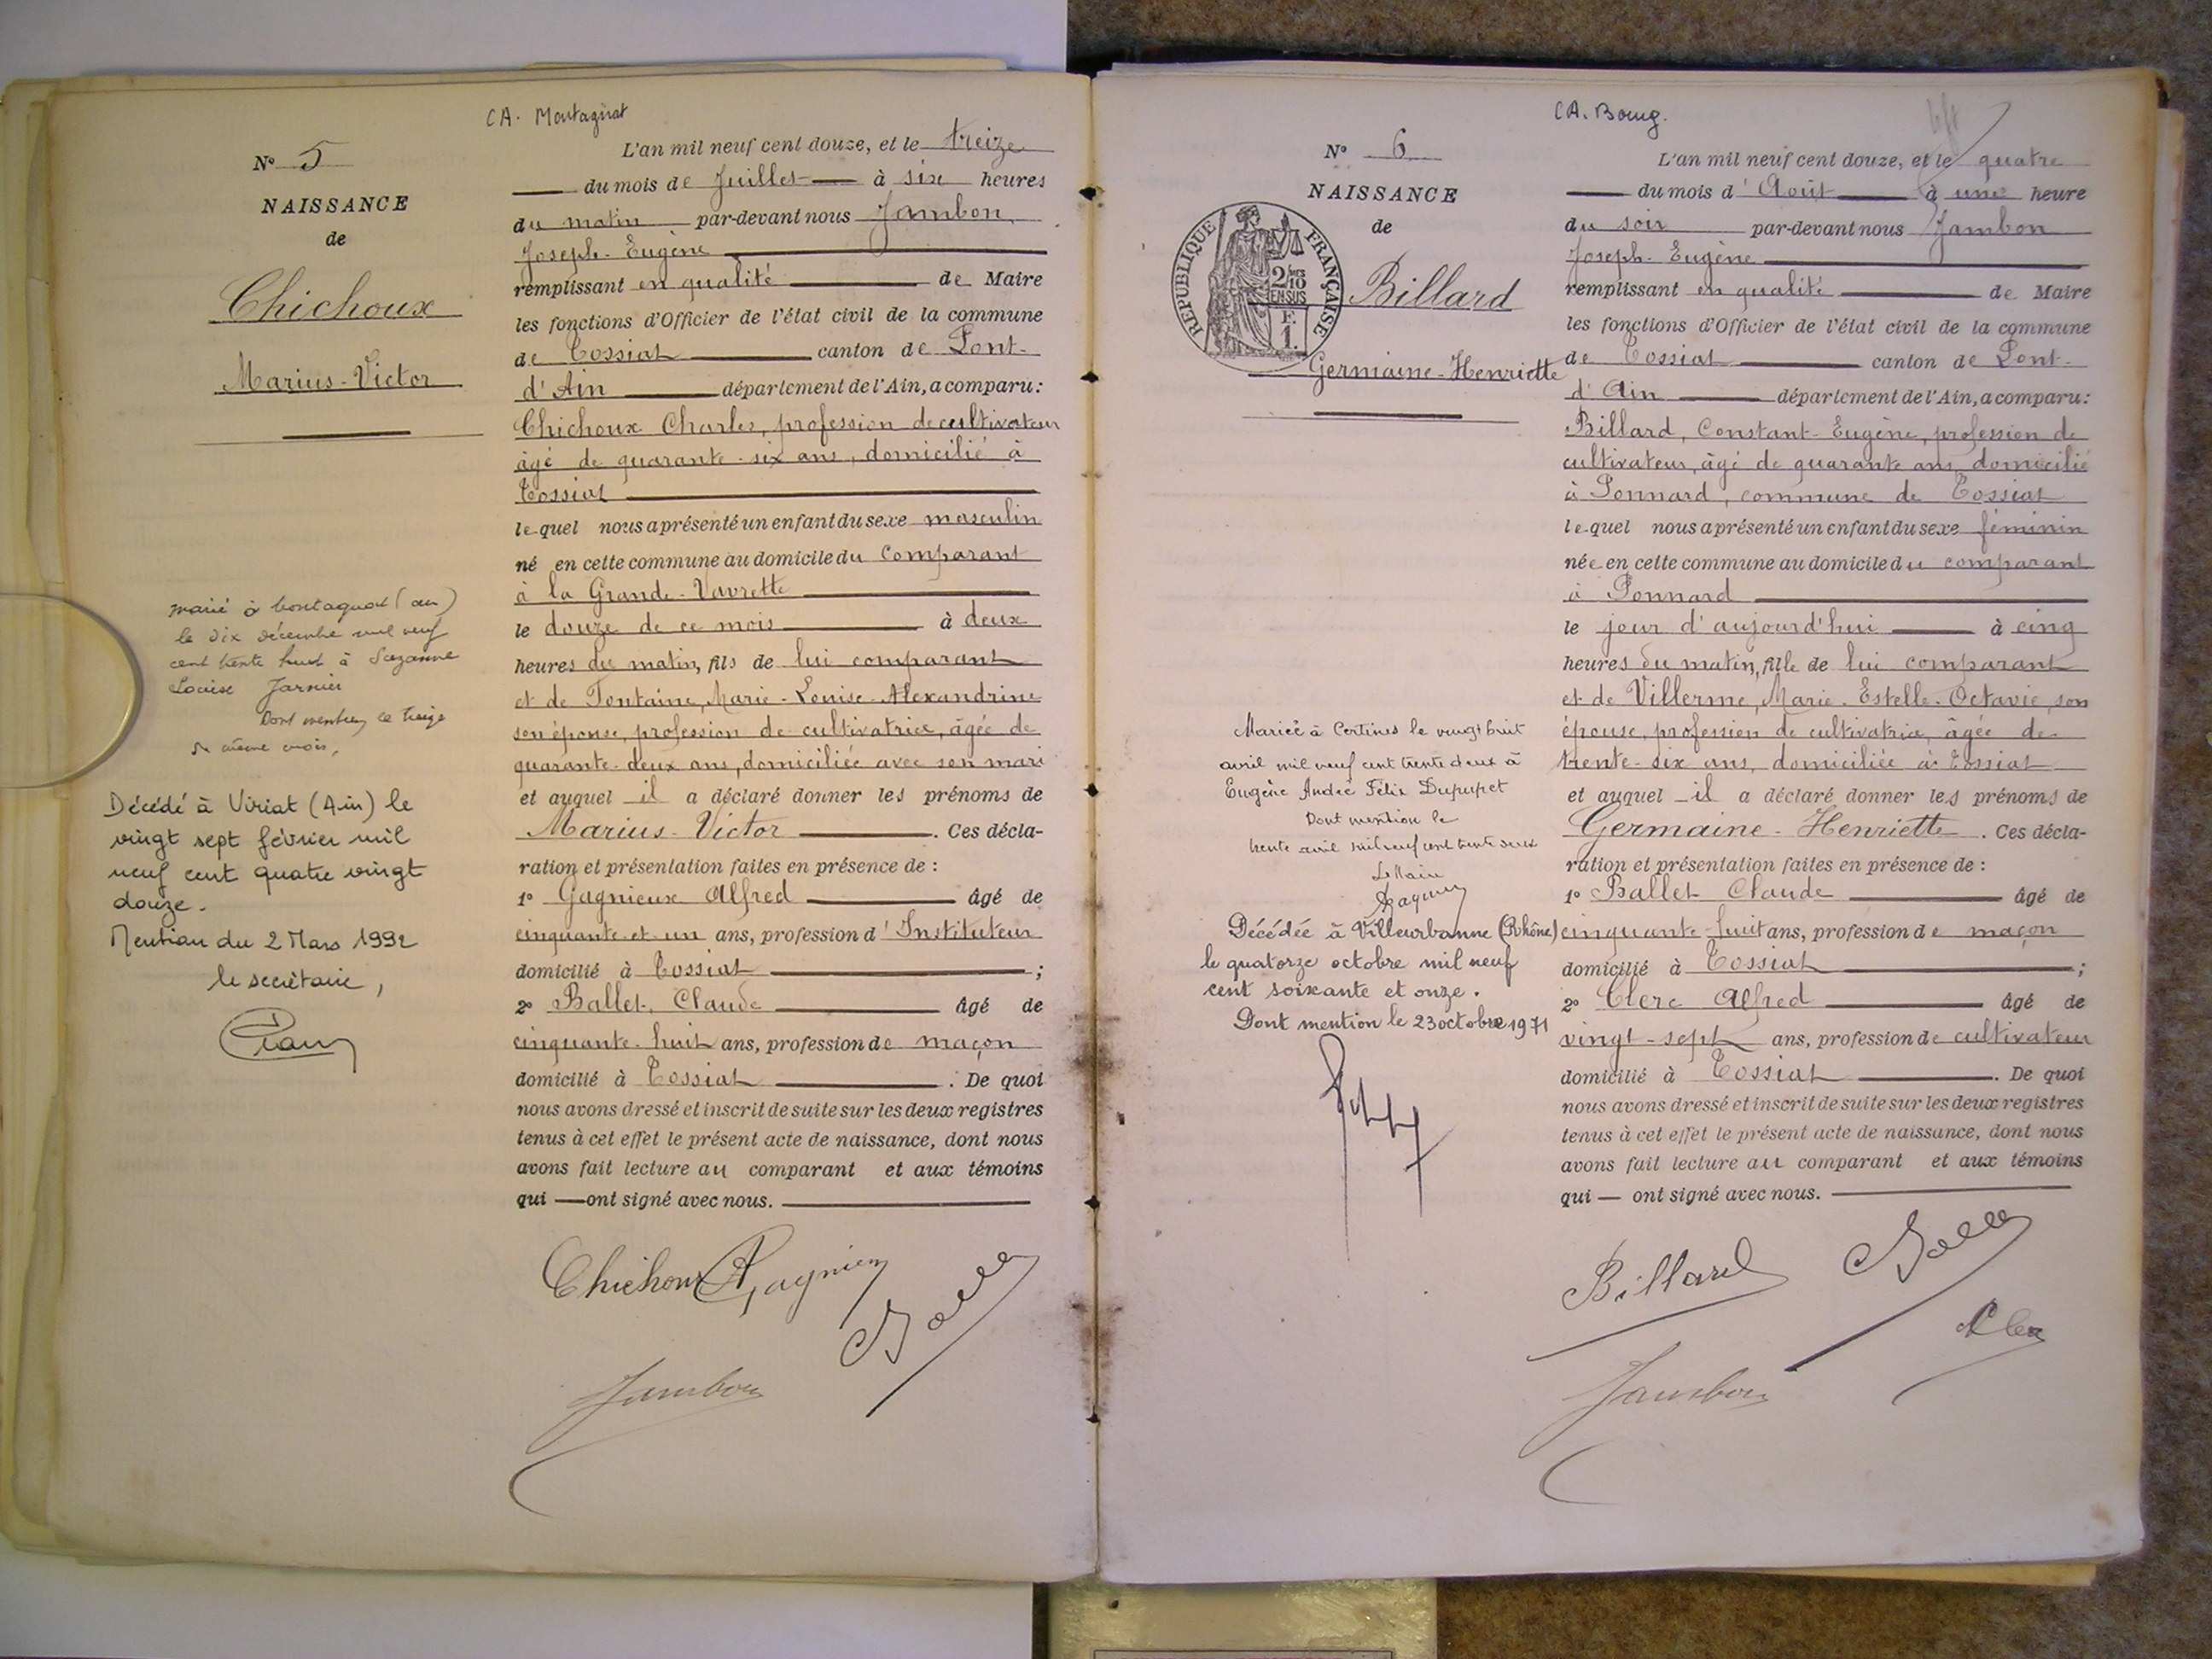 CA. Montagnat
N° 5
NAISSANCE
de
Chichoux
Marius-Victor
marié à Montagnat (Ain)
le dix décembre mil neuf
cent trente huit à Suzanne
Louise Jarnier
Dont mention, ce treize
du même mois,
Décédé à Viriat (Ain) le
vingt sept février mil
neuf cent quatre vingt
douze.
Mention du 2 Mars 1992
le secrétaire,
L'an mil neuf cent douze, et le treize
du mois de Juillet à six heures
du matin par-devant nous Jambon
Joseph-Eugène
remplissant en qualité de Maire
les fonctions d'Officier de l'état civil de la commune
de Tossiat canton de Pont-
d'Ain département de l'Ain, a comparu:
Chichoux Charles, profession de cultivateur
âgé de quarante-six ans, domicilié à
Tossiat
lequel nous a présenté un enfant du sexe masculin
né en cette commune au domicile du comparant
à la Grande-Vavrette
le douze de ce mois à deux
heures du matin, fils de lui comparant
et de Fontaine, Marie-Louise-Alexandrine
son épouse, profession de cultivatrice, âgée de
quarante-deux ans, domiciliée avec son mari
et auquel il a déclaré donner les prénoms de
Marius-Victor. Ces décla-
ration et présentation faites en présence de :
1° Gagnieux Alfred âgé de
cinquante et un ans, profession d'Instituteur
domicilié à Tossiat ;
2° Ballet, Claude âgé de
cinquante-huit ans, profession de maçon
domicilié à Tossiat. De quoi
nous avons dressé et inscrit de suite sur les deux registres
tenus à cet effet le présent acte de naissance, dont nous
avons fait lecture au comparant et aux témoins
qui ont signé avec nous.
Chichoux A Gagnieux
Ballet
Jambon
CA. Bourg.
N° 6
NAISSANCE
de
REPUBLIQUE FRANÇAISE
2/10
EN SUS
F.
1.
Billard
Germaine-Henriette
Mariée à Certines le vingt huit
avril mil neuf cent trente deux à
Eugène André Félix Dupupet
Dont mention le
trente avril mil neuf cent trente deux
Le Maire
Décédée à Villeurbanne (Rhône)
le quatorze octobre mil neuf
cent soixante et onze.
Dont mention le 23 octobre 1971
L'an mil neuf cent douze, et le quatre
du mois d'Août à une heure
du soir par-devant nous Jambon
Joseph-Eugène
remplissant en qualité de Maire
les fonctions d'Officier de l'état civil de la commune
de Tossiat canton de Pont-
d'Ain département de l'Ain, a comparu:
Billard, Constant-Eugène, profession de
cultivateur, âgé de quarante ans, domicilié
à Ponnard, commune de Tossiat
lequel nous a présenté un enfant du sexe féminin
née en cette commune au domicile du comparant
à Ponnard
le jour d'aujourd'hui à cinq
heures du matin, fille de lui comparant
et de Villerme, Marie-Estelle-Octavie, son
épouse, profession de cultivatrice, âgée de
trente-six ans, domiciliée à Tossiat
et auquel il a déclaré donner les prénoms de
Germaine-Henriette. Ces décla-
ration et présentation faites en présence de :
1° Ballet Claude âgé de
cinquante-huit ans, profession de maçon
domicilié à Tossiat ;
2° Clerc Alfred âgé de
vingt-sept ans, profession de cultivateur
domicilié à Tossiat. De quoi
nous avons dressé et inscrit de suite sur les deux registres
tenus à cet effet le présent acte de naissance, dont nous
avons fait lecture au comparant et aux témoins
qui ont signé avec nous.
Billard
Ballet
A Clerc
Jambon